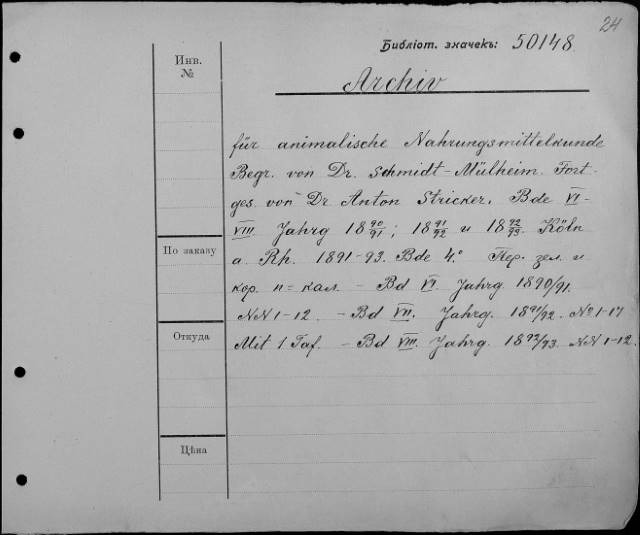 24
Библіот. значекъ: 50148.
Инв.
№
Archiv
für animalische Nahrungsmittelkunde
Begr. von Dr. Schmidt-Mülheim. Fort-
ges. von Dr Anton Stricker. Bde VI-
VIII. Jahrg 18 90/91; 18 91/92 и 18 92/93 Köln
По заказу
a. Rh. 1891-93. Bde 4.° Пер. зел. и
кор. п=кал. - Bd VI. Jahrg 1890/91.
NN 1-12. - Bd VII. Jahrg. 1891/92. No 1-17
Откуда
Mit 1 Taf. - Bd VIII. Jahrg. 1892/93. NN 1-12.
Цѣна